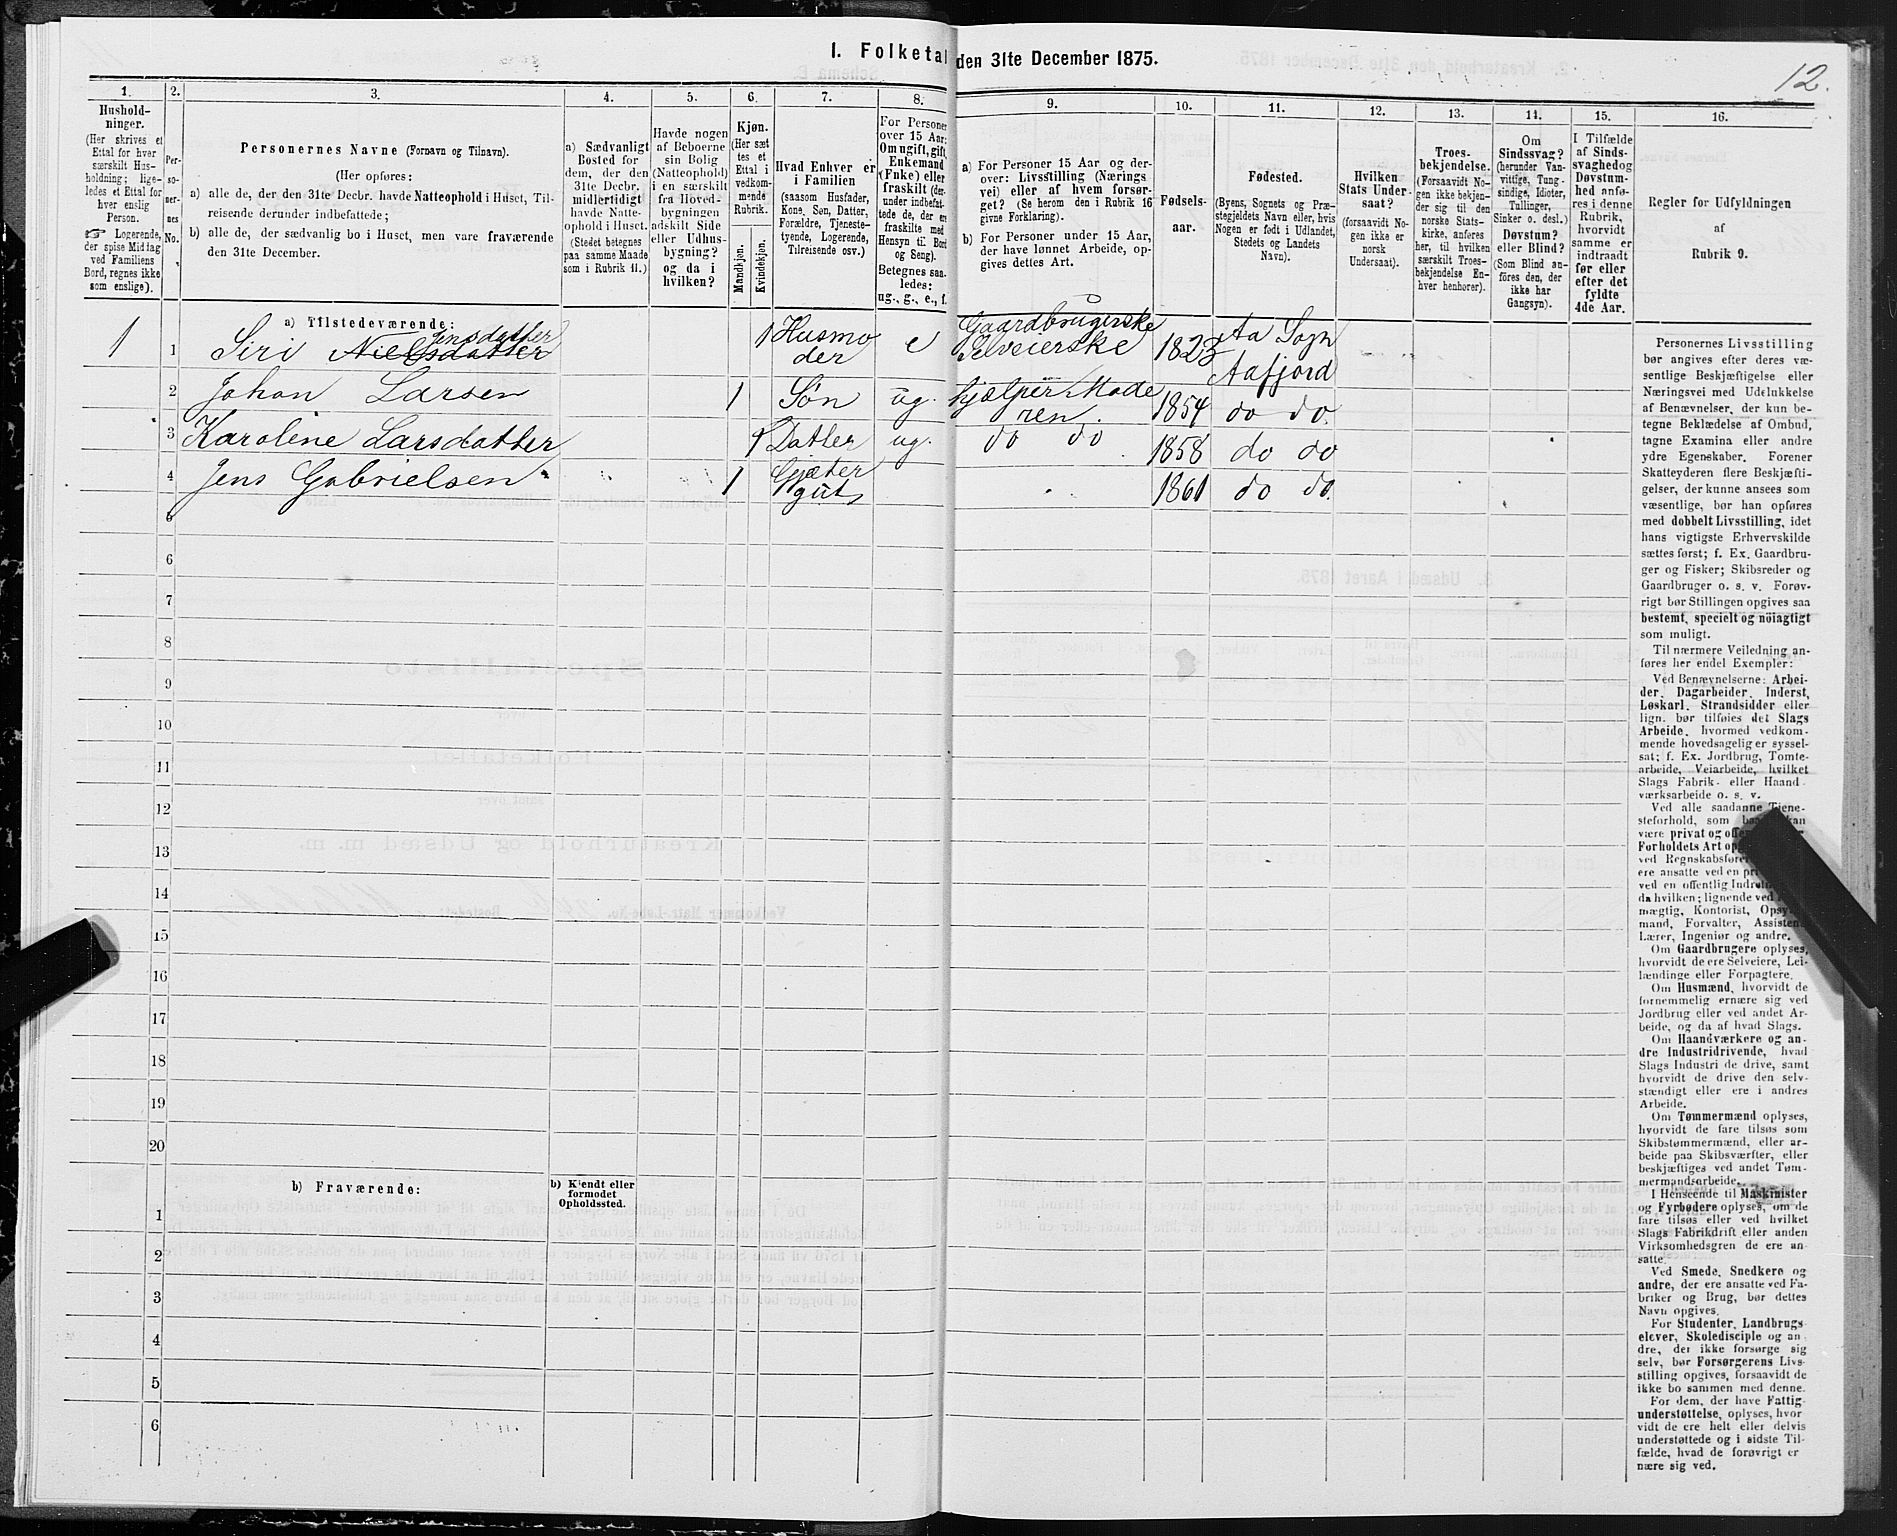 I. Folketal den 31te December 1875.
12.
1. 2. 3. 4. 5. 6. 7. 8. 9. 10. 11. 12. 13. 14. 15. 16.
Hushold-
ninger.
(Her skrives et
Ettal for hver
særskilt Hus-
holdning; lige-
ledes et Ettal for
hver enslig
Person.
☞ Logerende,
der spise Middag
ved Familiens
Bord, regnes ikke
som enslige).
Per-
so-
ner-
nes
No.
Personernes Navne (Fornavn og Tilnavn).
(Her opføres:
a) alle de, der den 31te Decbr. havde Natteophold i Huset, Til-
reisende derunder indbefattede;
b) alle de, der sædvanlig bo i Huset, men vare fraværende
den 31te December.
a) Sædvanligt
Bosted for
dem, der den
31te Decbr.
midlertidigt
havde Natte-
ophold i Huset.
(Stedet betegnes
paa samme Maade
som i Rubrik 11.)
Havde nogen
af Beboerne
sin Bolig
(Natteophold)
i en særskilt
fra Hoved-
bygningen
adskilt Side
eller Udhus-
bygning?
og da i
hvilken?
Kjøn.
(Her sæt
tes et
Ettal i
vedkom-
mende
Rubrik.
Mandkjøn.
Kvindekjøn.
Hvad Enhver er
i Familien
(saasom Husfader,
Kone, Søn, Datter,
Forældre, Tjeneste-
tyende, Logerende,
Tilreisende osv.)
For Personer
over 15 Aar:
Om ugift, gift,
Enkemand
(Enke) eller
fraskilt (der-
under indbefat-
tede de, der ere
fraskilte med
Hensyn til Bord
og Seng).
Betegnes saa-
ledes:
ug., g., e., f.
a) For Personer 15 Aar og der-
over: Livsstilling (Nærings
vei) eller af hvem forsør-
get? (Se herom den i Rubrik 16
givne Forklaring).
b) For Personer under 15 Aar,
der have lønnet Arbeide, op-
gives dettes Art.
Fødsels-
aar.
Fødested.
(Byens, Sognets og Præ-
stegjeldets Navn eller, hvis
Nogen er født i Udlandet,
Stedets og Landets
Navn).
Hvilken
Stats Under-
saat?
(forsaavidt No-
gen ikke er
norsk
Undersaat).
Troes-
bekjendelse.
(Forsaavidt No-
gen ikke bekjen-
der sig til den
norske Stats-
kirke, anføres
her, til hvilken
særskilt Troes-
bekjendelse En-
hver henhører).
Om
Sindssvag?
(herunder Van-
vittige, Tung-
sindige, Idioter,
Tullinger,
Sinker o. desl.)
Døvstum?
eller Blind?
(Som Blind an-
føres den, der
ikke har
Gangsyn).
I Tilfælde
af Sinds-
svaghed og
Døvstum-
hed anfø-
res i denne
Rubrik,
hvorvidt
samme er
indtraadt
før eller
efter det
fyldte
4de Aar.
Regler for Udfyldningen
af
Rubrik 9.
a) Tilstedeværende:
Jensdatter
1 1 Siri Nielsdatter 1 Husmo
der e Gaardbrugerske
Selveierske 1823 Aa Sogn
Aafjord
2 Johan Larsen 1 Søn ug. hjælper Mode
ren. 1854 do do.
3 Karoline Larsdatter 1 Datter ug. do do 1858 do do
4 Jens Gabrielsen 1 Gjæter
gut 1861 do do.
5
6
7
8
9
10
11
12
13
14
15
16
17
18
19
20
b) Fraværende:
b) Kjendt eller
formodet
Opholdssted.
1
2
3
4
5
6
Personernes Livsstilling
bør angives efter deres væ-
sentlige Beskjæftigelse eller
Næringsvei med Udelukkelse
af Benævnelser, der kun be-
tegne Beklædelse af Ombud,
tagne Examina eller andre
ydre Egenskaber. Forener
Skatteyderen flere Beskjæfti-
gelser, der kunne ansees som
væsentlige, bør han opføres
med dobbelt Livsstilling, idet
hans vigtigste Erhvervskilde
sættes først; f. Ex. Gaardbru-
ger og Fisker; Skibsreder og
Gaardbruger o. s. v. Forøv-
rigt bør Stillingen opgives saa
bestemt, specielt og nöiagtigt
som muligt.
Til nærmere Veiledning an-
føres her endel Exempler:
Ved Benævnelserne: Arbei-
der, Dagarbeider, Inderst,
Løskarl, Strandsidder eller
lign. bør tilføies det Slags
Arbeide, hvormed vedkom-
mende hovedsagelig er syssel-
sat; f. Ex. Jordbrug, Tomte-
arbeide, Veiarbeide, hvilket
Slags Fabrik- eller Haand-
værksarbeide o. s. v.
Ved alle saadanne Tjene-
steforhold, som kan
være privat og
Forholdets Art
ved Regnskabsfører
ere ansatte ved en
ved en offentlig
da hvilken; lignende ved
mægtig, Kontorist,
mand, Forvalter,
Lærer, Ingeniør og andre.
Om Gaardbrugere oplyses,
hvorvidt de ere Selveiere, Lei-
lændinge eller Forpagtere.
Om Husmænd, hvorvidt de
fornemmelig ernære sig ved
Jordbrug eller ved andet Ar-
beide, og da af hvad Slags.
Om Haandværkere og an-
dre Industridrivende, hvad
Slags Industri de drive, samt
hvorvidt de drive den selv-
stændigt eller ere i andres
Arbeide.
Om Tømmermænd oplyses,
hvorvidt de fare tilsøs som
Skibstømmermænd, eller ar-
beide paa Skibsværfter, eller
beskjæftiges ved andet Tøm-
mermandsarbeide.
I Henseende til Maskinister
og Fyrbødere oplyses, om de
fare tilsøs eller ved hvilket
Slags Fabrikdrift eller anden
Virksomhedsgren de ere an-
satte.
Ved Smede, Snedkere og
andre, der ere ansatte ved Fa-
briker og Brug, bør dettes
Navn opgives.
For Studenter, Landbrugs-
elever, Skoledisciple og an
dre, der ikke forsørge sig
selv, bør Forsørgerens Livs-
stilling opgives, forsaavidt de
ikke bo sammen med denne.
For dem, der have Fattig-
understøttelse, oplyses, hvor
vidt de ere helt eller delvis
understøttede og i sidste Til-
fælde, hvad de forøvrigt er
nære sig ved.